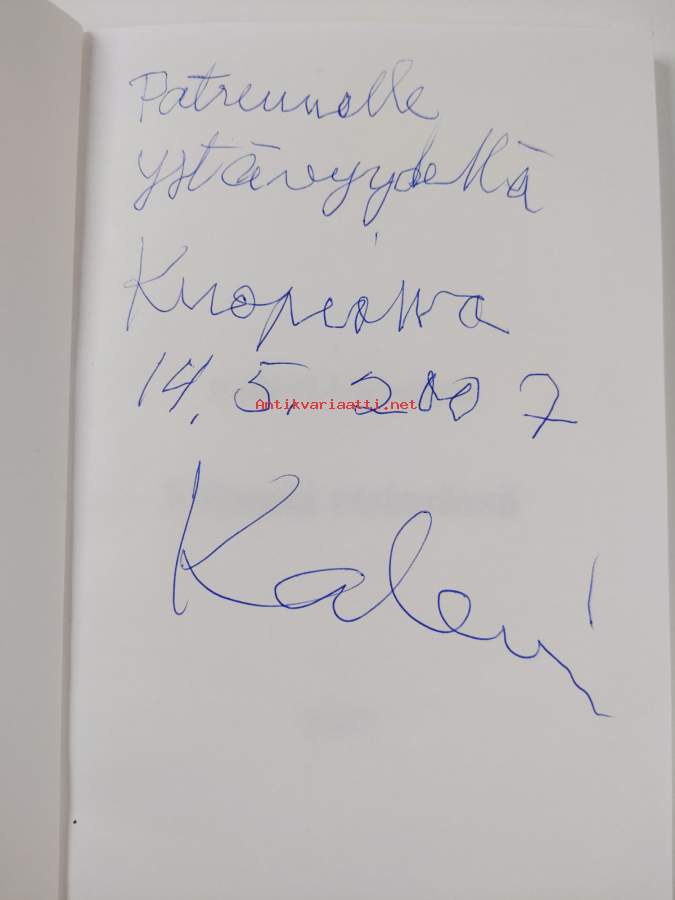 Patreunolle
ystävyydellä
Kuopiossa
14.5.2007
Antikvariaatti.net
Kalevi